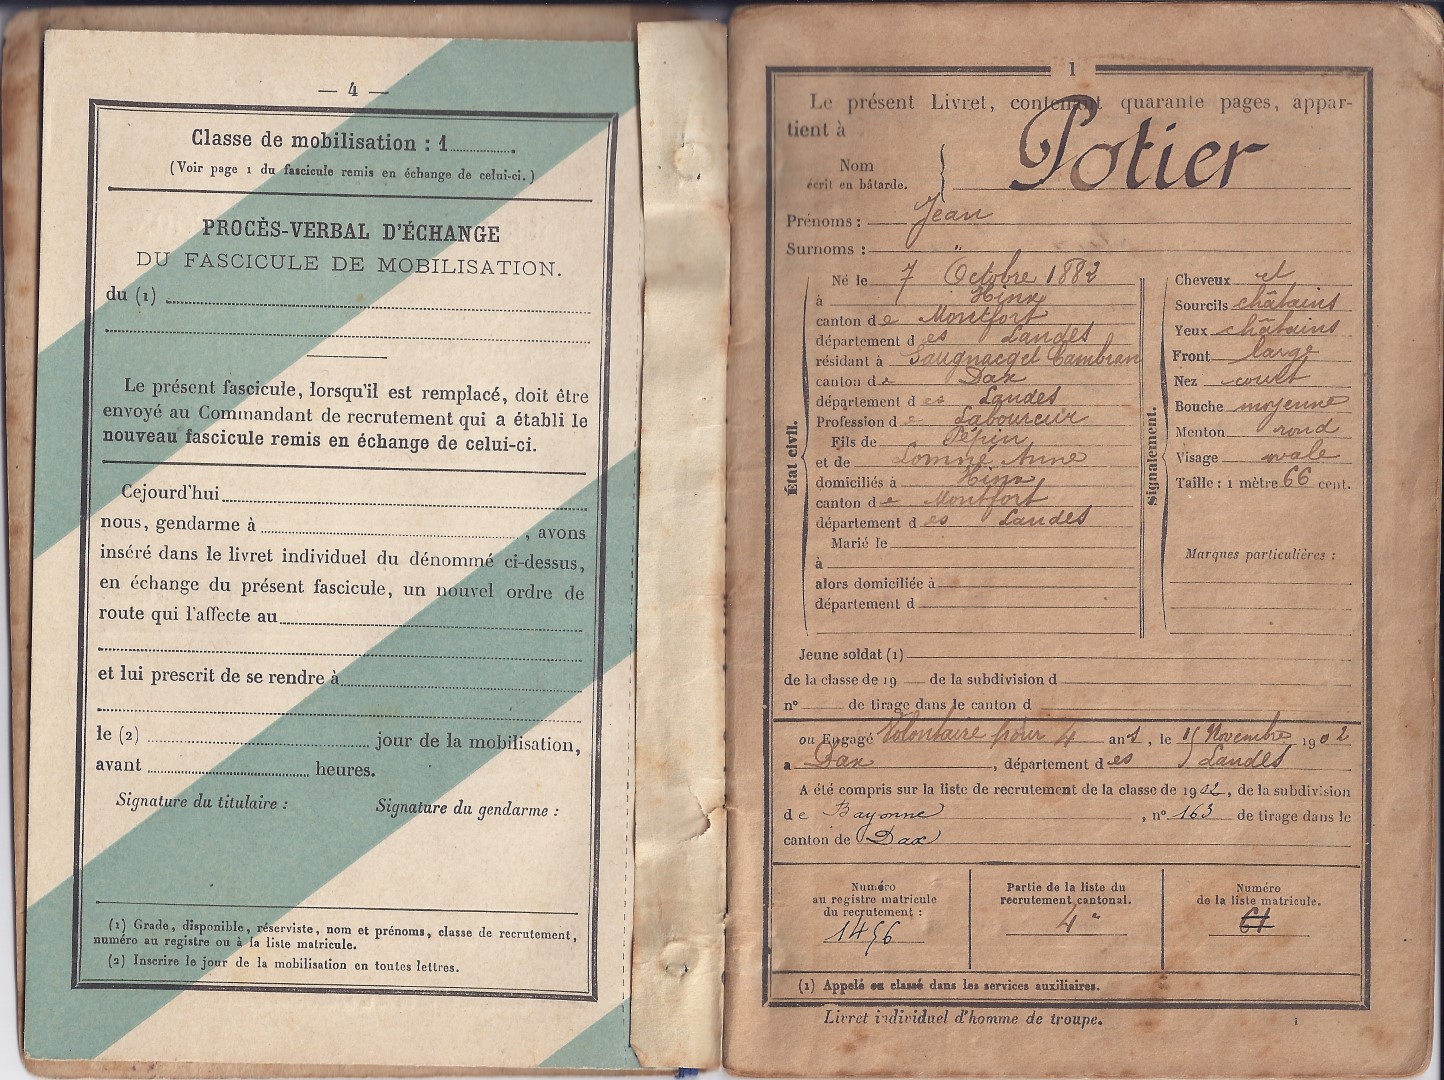 — 4 —
Classe de mobilisation : 1
(Voir page 1 du fascicule remis en échange de celui-ci.)
PROCÈS-VERBAL D'ÉCHANGE
DU FASCICULE DE MOBILISATION.
du (1)
Le présent fascicule, lorsqu'il est remplacé, doit être
envoyé au Commandant de recrutement qui a établi le
nouveau fascicule remis en échange de celui-ci.
Cejourd'hui
nous, gendarme à , avons
inséré dans le livret individuel du dénommé ci-dessus,
en échange du présent fascicule, un nouvel ordre de
route qui l'affecte au
et lui prescrit de se rendre à
le (2) jour de la mobilisation,
avant heures.
Signature du titulaire : Signature du gendarme :
(1) Grade, disponible, réserviste, nom et prénoms, classe de recrutement,
numéro au registre ou à la liste matricule.
(2) Inscrire le jour de la mobilisation en toutes lettres.
1
Le présent Livret, contenant quarante pages, appar-
tient à
Nom
écrit en bâtarde.
Potier
Prénoms : Jean
Surnoms : "
État civil.
Né le 7 Octobre 1882
à Hinx
canton de Montfort
département des Landes
résidant à Saugnacq et Cambran
canton de Dax
département des Landes
Profession de Laboureur
Fils de Pépin
et de Lomné Anne
domiciliés à Hinx
canton de Montfort
département des Landes
Marié le
à
alors domiciliée à
département d
Signalement.
Cheveux et
Sourcils châtains
Yeux châtains
Front large
Nez court
Bouche moyenne
Menton rond
Visage ovale
Taille : 1 mètre 66 cent.
Marques particulières :
Jeune soldat (1)
de la classe de 19 de la subdivision d
n° de tirage dans le canton d
ou Engagé Volontaire pour 4 ans, le 15 Novembre 1902
à Dax, département des Landes
A été compris sur la liste de recrutement de la classe de 1902, de la subdivision
de Bayonne, n° 163 de tirage dans le
canton de Dax
Numéro
au registre matricule
du recrutement :
1496
Partie de la liste du
recrutement cantonal.
4e
Numéro
de la liste matricule.
61
(1) Appelé ou classé dans les services auxiliaires.
Livret individuel d'homme de troupe. 1